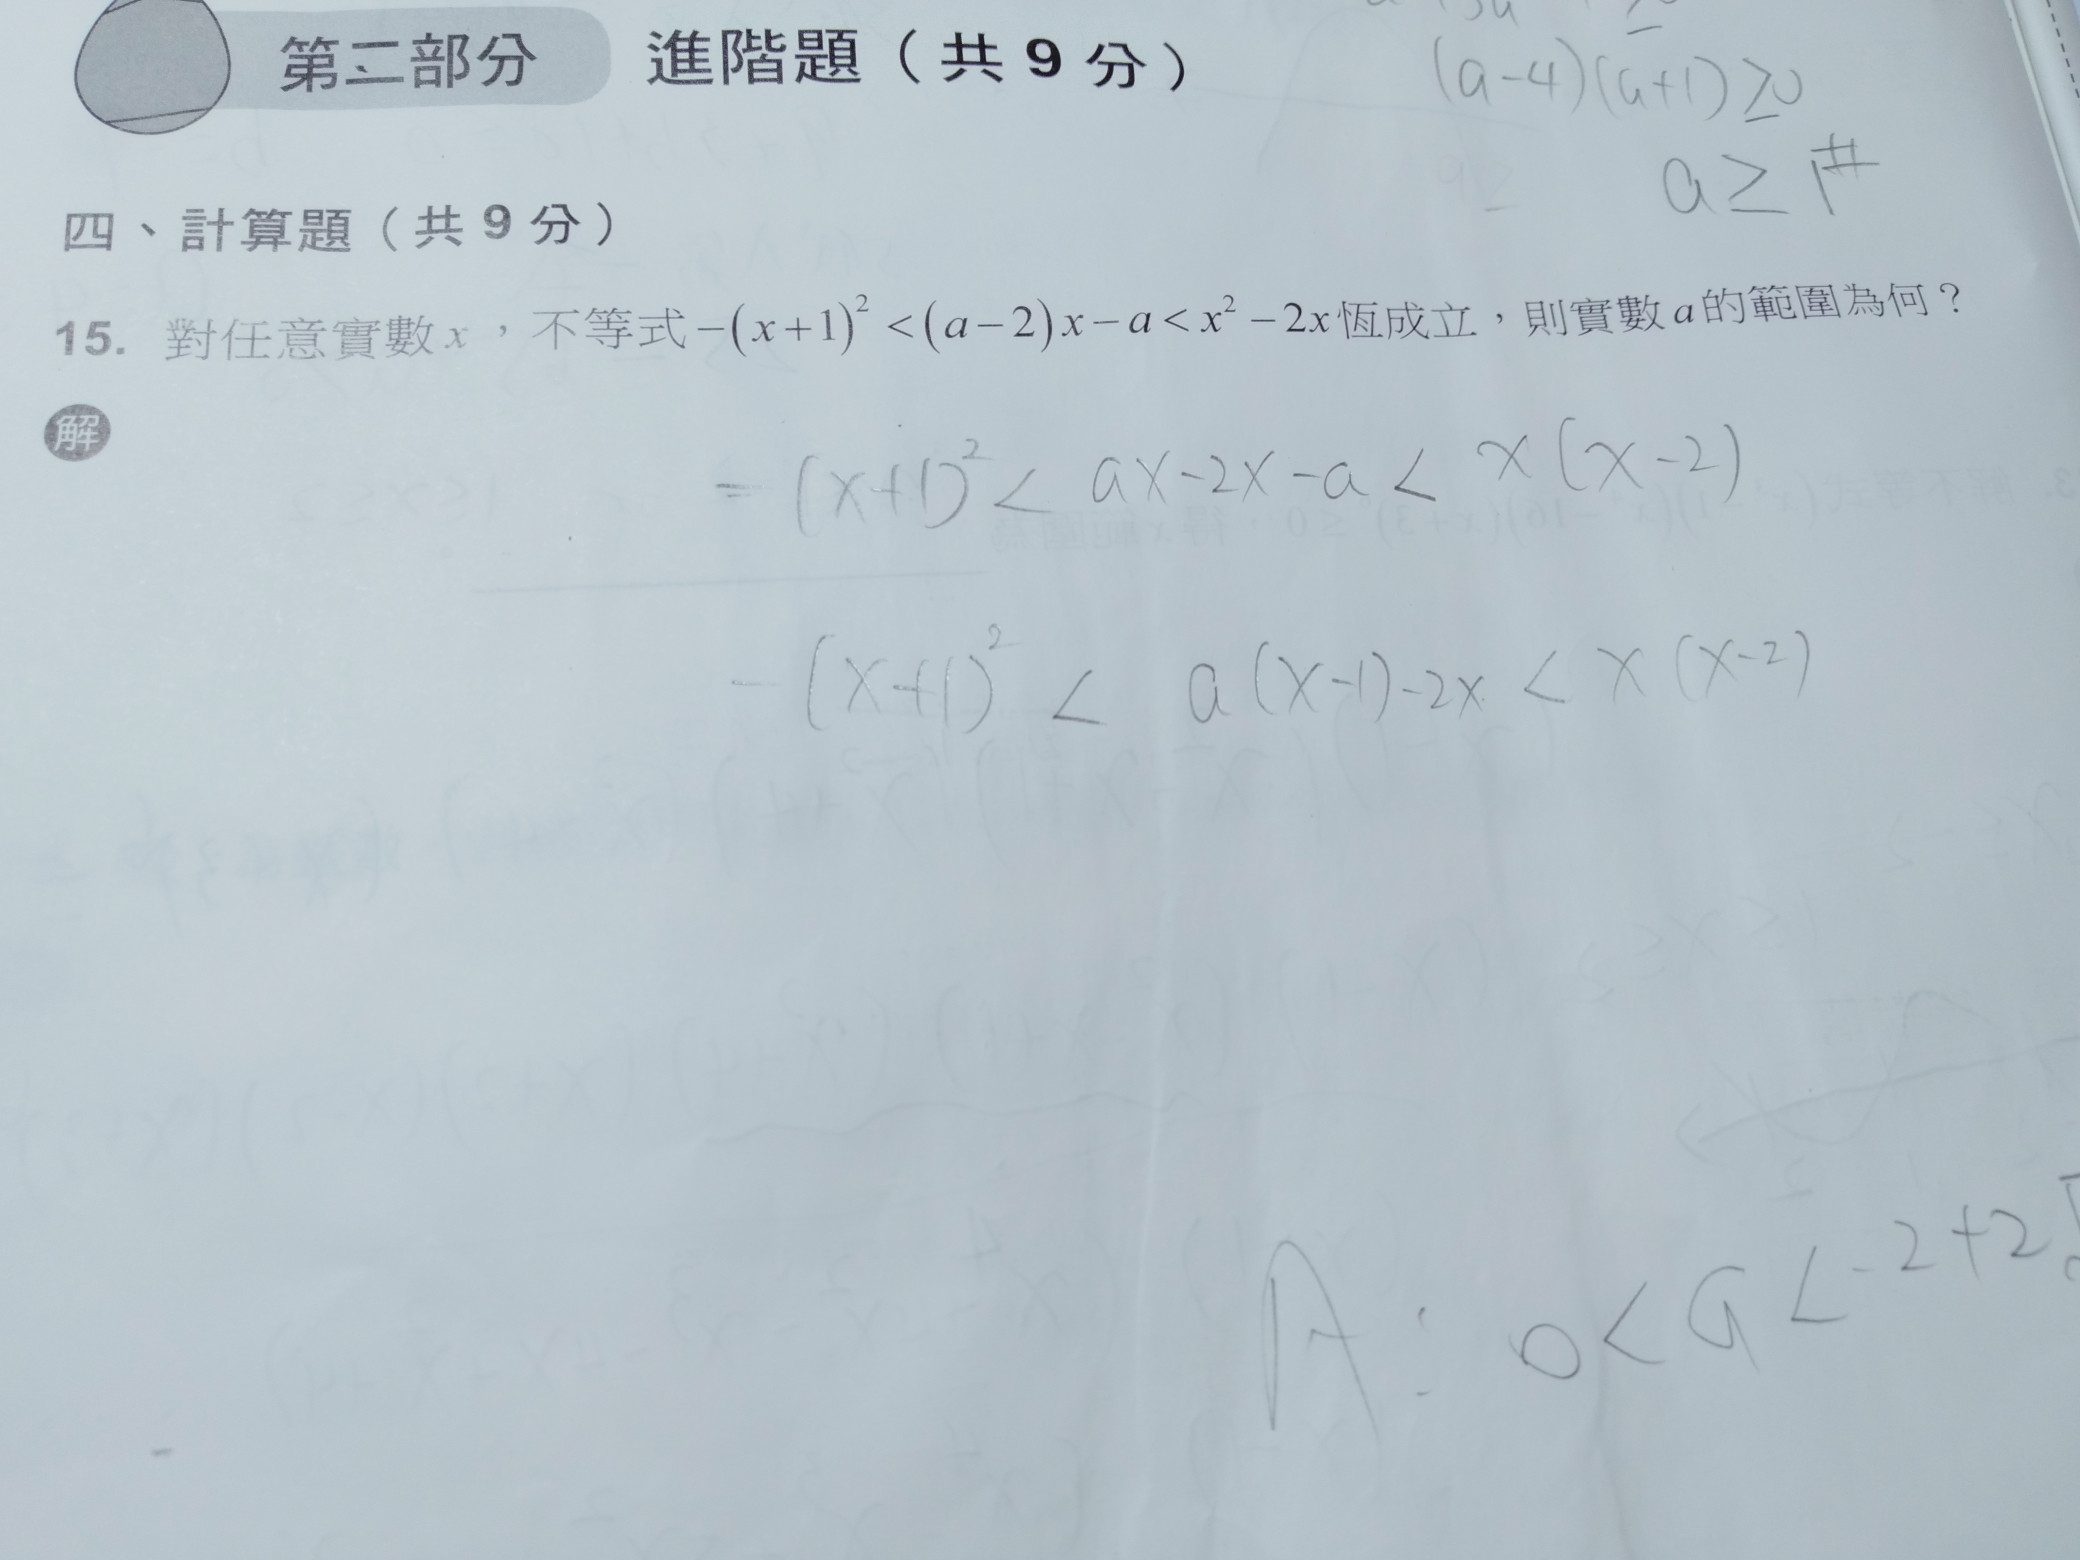 (a-4)(a+1)≥0
第二部分 進階題（共 9 分）
a≥
四、計算題（共 9 分）
15. 對任意實數 x ，不等式 −(x+1)² < (a−2)x−a < x²−2x 恆成立，則實數 a 的範圍為何？
解
-(x+1)² < ax-2x-a < x(x-2)
-(x+1)² < a(x-1)-2x < x(x-2)
A : 0<a<-2+2